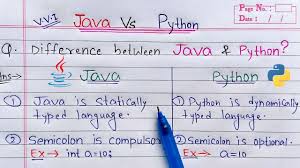 V.V.I Java Vs Python
Page No.:
Date: / /
Q. Difference between Java & Python?
Ans→ Java Python
① Java is statically typed language.
① Python is dynamically typed language.
② Semicolon is compulsory
Ex → int a=10;
② Semicolon is optional.
Ex → a=10